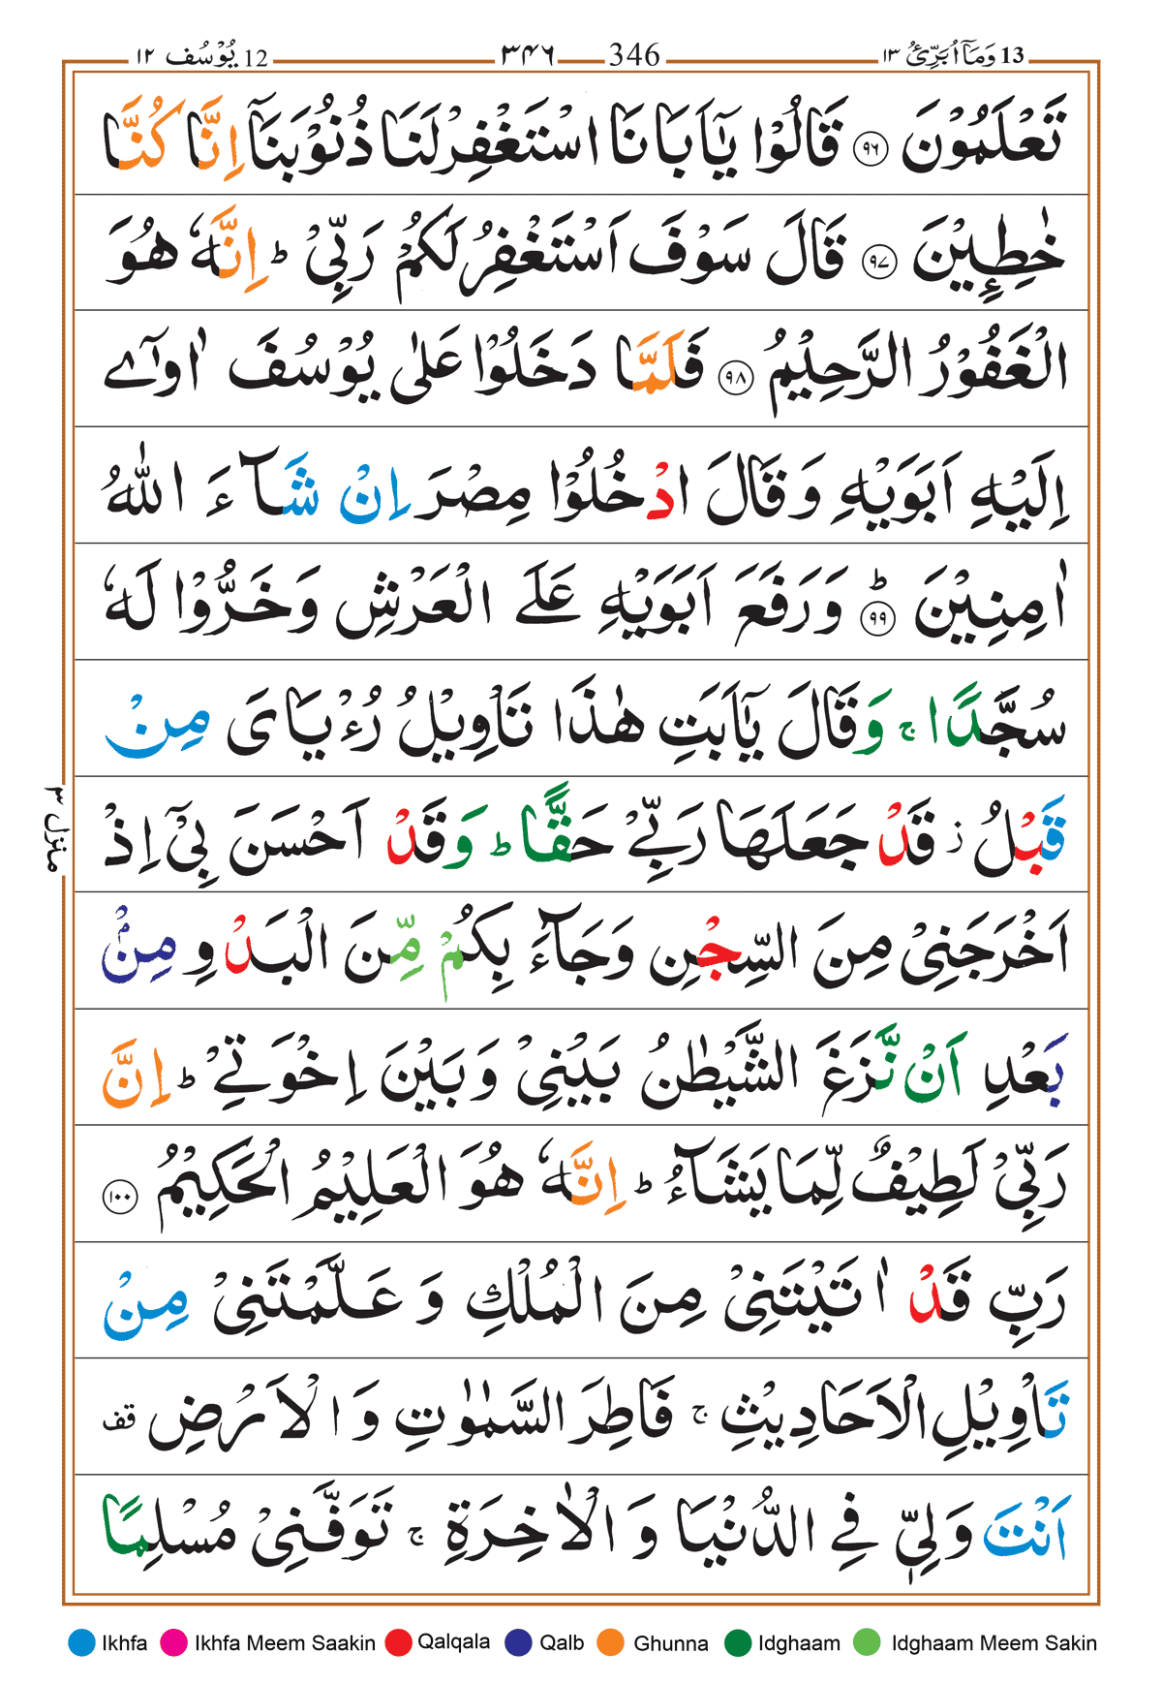 13 وَمَآ اُبَرِّئُ ١٣ 346 ٣٤٦ 12 يُوْسُف ١٢
تَعْلَمُوْنَ ٩٦ قَالُوْا يٰۤاَبَانَا اسْتَغْفِرْ لَنَا ذُنُوْبَنَاۤ اِنَّا كُنَّا
خٰطِـِٕيْنَ ٩٧ قَالَ سَوْفَ اَسْتَغْفِرُ لَكُمْ رَبِّيْ ؕ اِنَّهٗ هُوَ
الْغَفُوْرُ الرَّحِيْمُ ٩٨ فَلَمَّا دَخَلُوْا عَلٰى يُوْسُفَ اٰوٰۤى
اِلَيْهِ اَبَوَيْهِ وَقَالَ ادْخُلُوْا مِصْرَ اِنْ شَآءَ اللّٰهُ
اٰمِنِيْنَ ؕ ٩٩ وَرَفَعَ اَبَوَيْهِ عَلَى الْعَرْشِ وَخَرُّوْا لَهٗ
سُجَّدًا ۚ وَقَالَ يٰۤاَبَتِ هٰذَا تَاْوِيْلُ رُءْيَايَ مِنْ
قَبْلُ ؗ قَدْ جَعَلَهَا رَبِّيْ حَقًّا ؕ وَقَدْ اَحْسَنَ بِيْۤ اِذْ
اَخْرَجَنِيْ مِنَ السِّجْنِ وَجَآءَ بِكُمْ مِّنَ الْبَدْوِ مِنْۢ
بَعْدِ اَنْ نَّزَغَ الشَّيْطٰنُ بَيْنِيْ وَبَيْنَ اِخْوَتِيْ ؕ اِنَّ
رَبِّيْ لَطِيْفٌ لِّمَا يَشَآءُ ؕ اِنَّهٗ هُوَ الْعَلِيْمُ الْحَكِيْمُ ١٠٠
رَبِّ قَدْ اٰتَيْتَنِيْ مِنَ الْمُلْكِ وَعَلَّمْتَنِيْ مِنْ
تَاْوِيْلِ الْاَحَادِيْثِ ۚ فَاطِرَ السَّمٰوٰتِ وَالْاَرْضِ قف
اَنْتَ وَلِيّٖ فِي الدُّنْيَا وَالْاٰخِرَةِ ۚ تَوَفَّنِيْ مُسْلِمًا
منزل ٣
Ikhfa Ikhfa Meem Saakin Qalqala Qalb Ghunna Idghaam Idghaam Meem Sakin